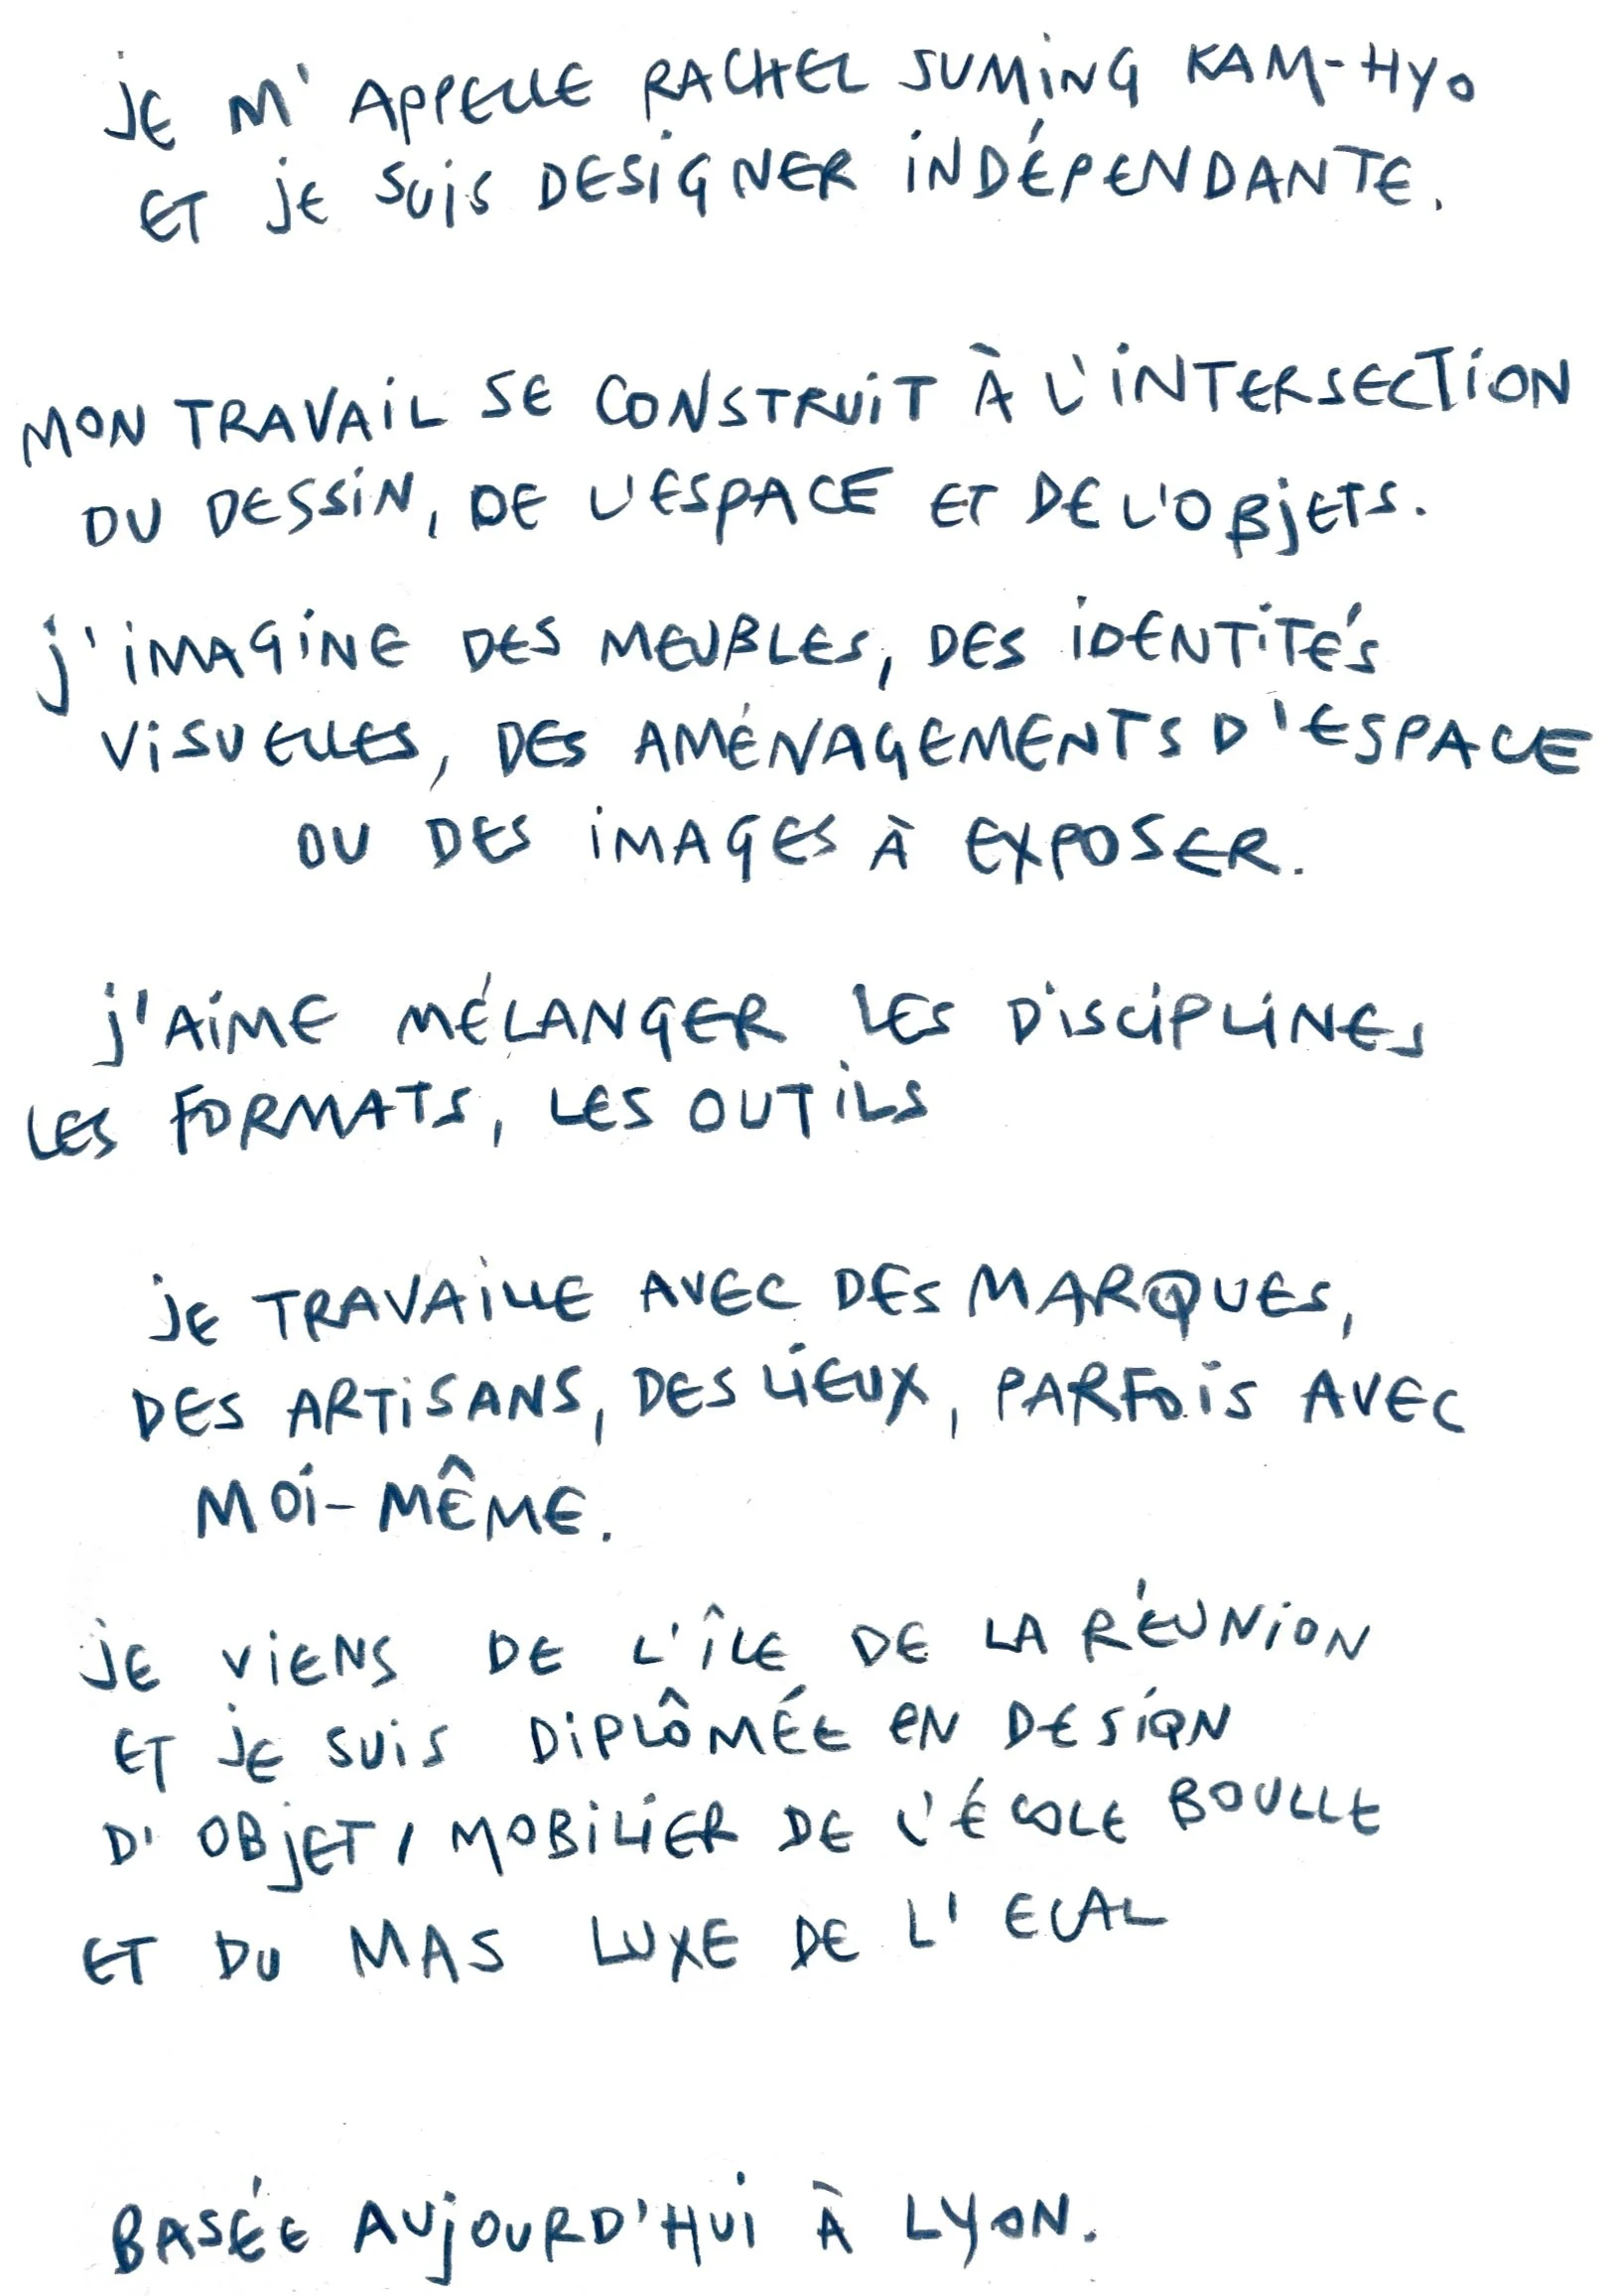 JE M'APPELLE RACHEL SUMING KAM-HYO
ET JE SUIS DESIGNER INDÉPENDANTE.
MON TRAVAIL SE CONSTRUIT À L'INTERSECTION
DU DESSIN, DE L'ESPACE ET DE L'OBJETS.
J'IMAGINE DES MEUBLES, DES IDENTITÉS
VISUELLES, DES AMÉNAGEMENTS D'ESPACE
OU DES IMAGES À EXPOSER.
J'AIME MÉLANGER LES DISCIPLINES
LES FORMATS, LES OUTILS
JE TRAVAILLE AVEC DES MARQUES,
DES ARTISANS, DES LIEUX, PARFOIS AVEC
MOI-MÊME.
JE VIENS DE L'ÎLE DE LA RÉUNION
ET JE SUIS DIPLÔMÉE EN DESIGN
D'OBJET / MOBILIER DE L'ÉCOLE BOULLE
ET DU MAS LUXE DE L'ECAL
BASÉE AUJOURD'HUI À LYON.